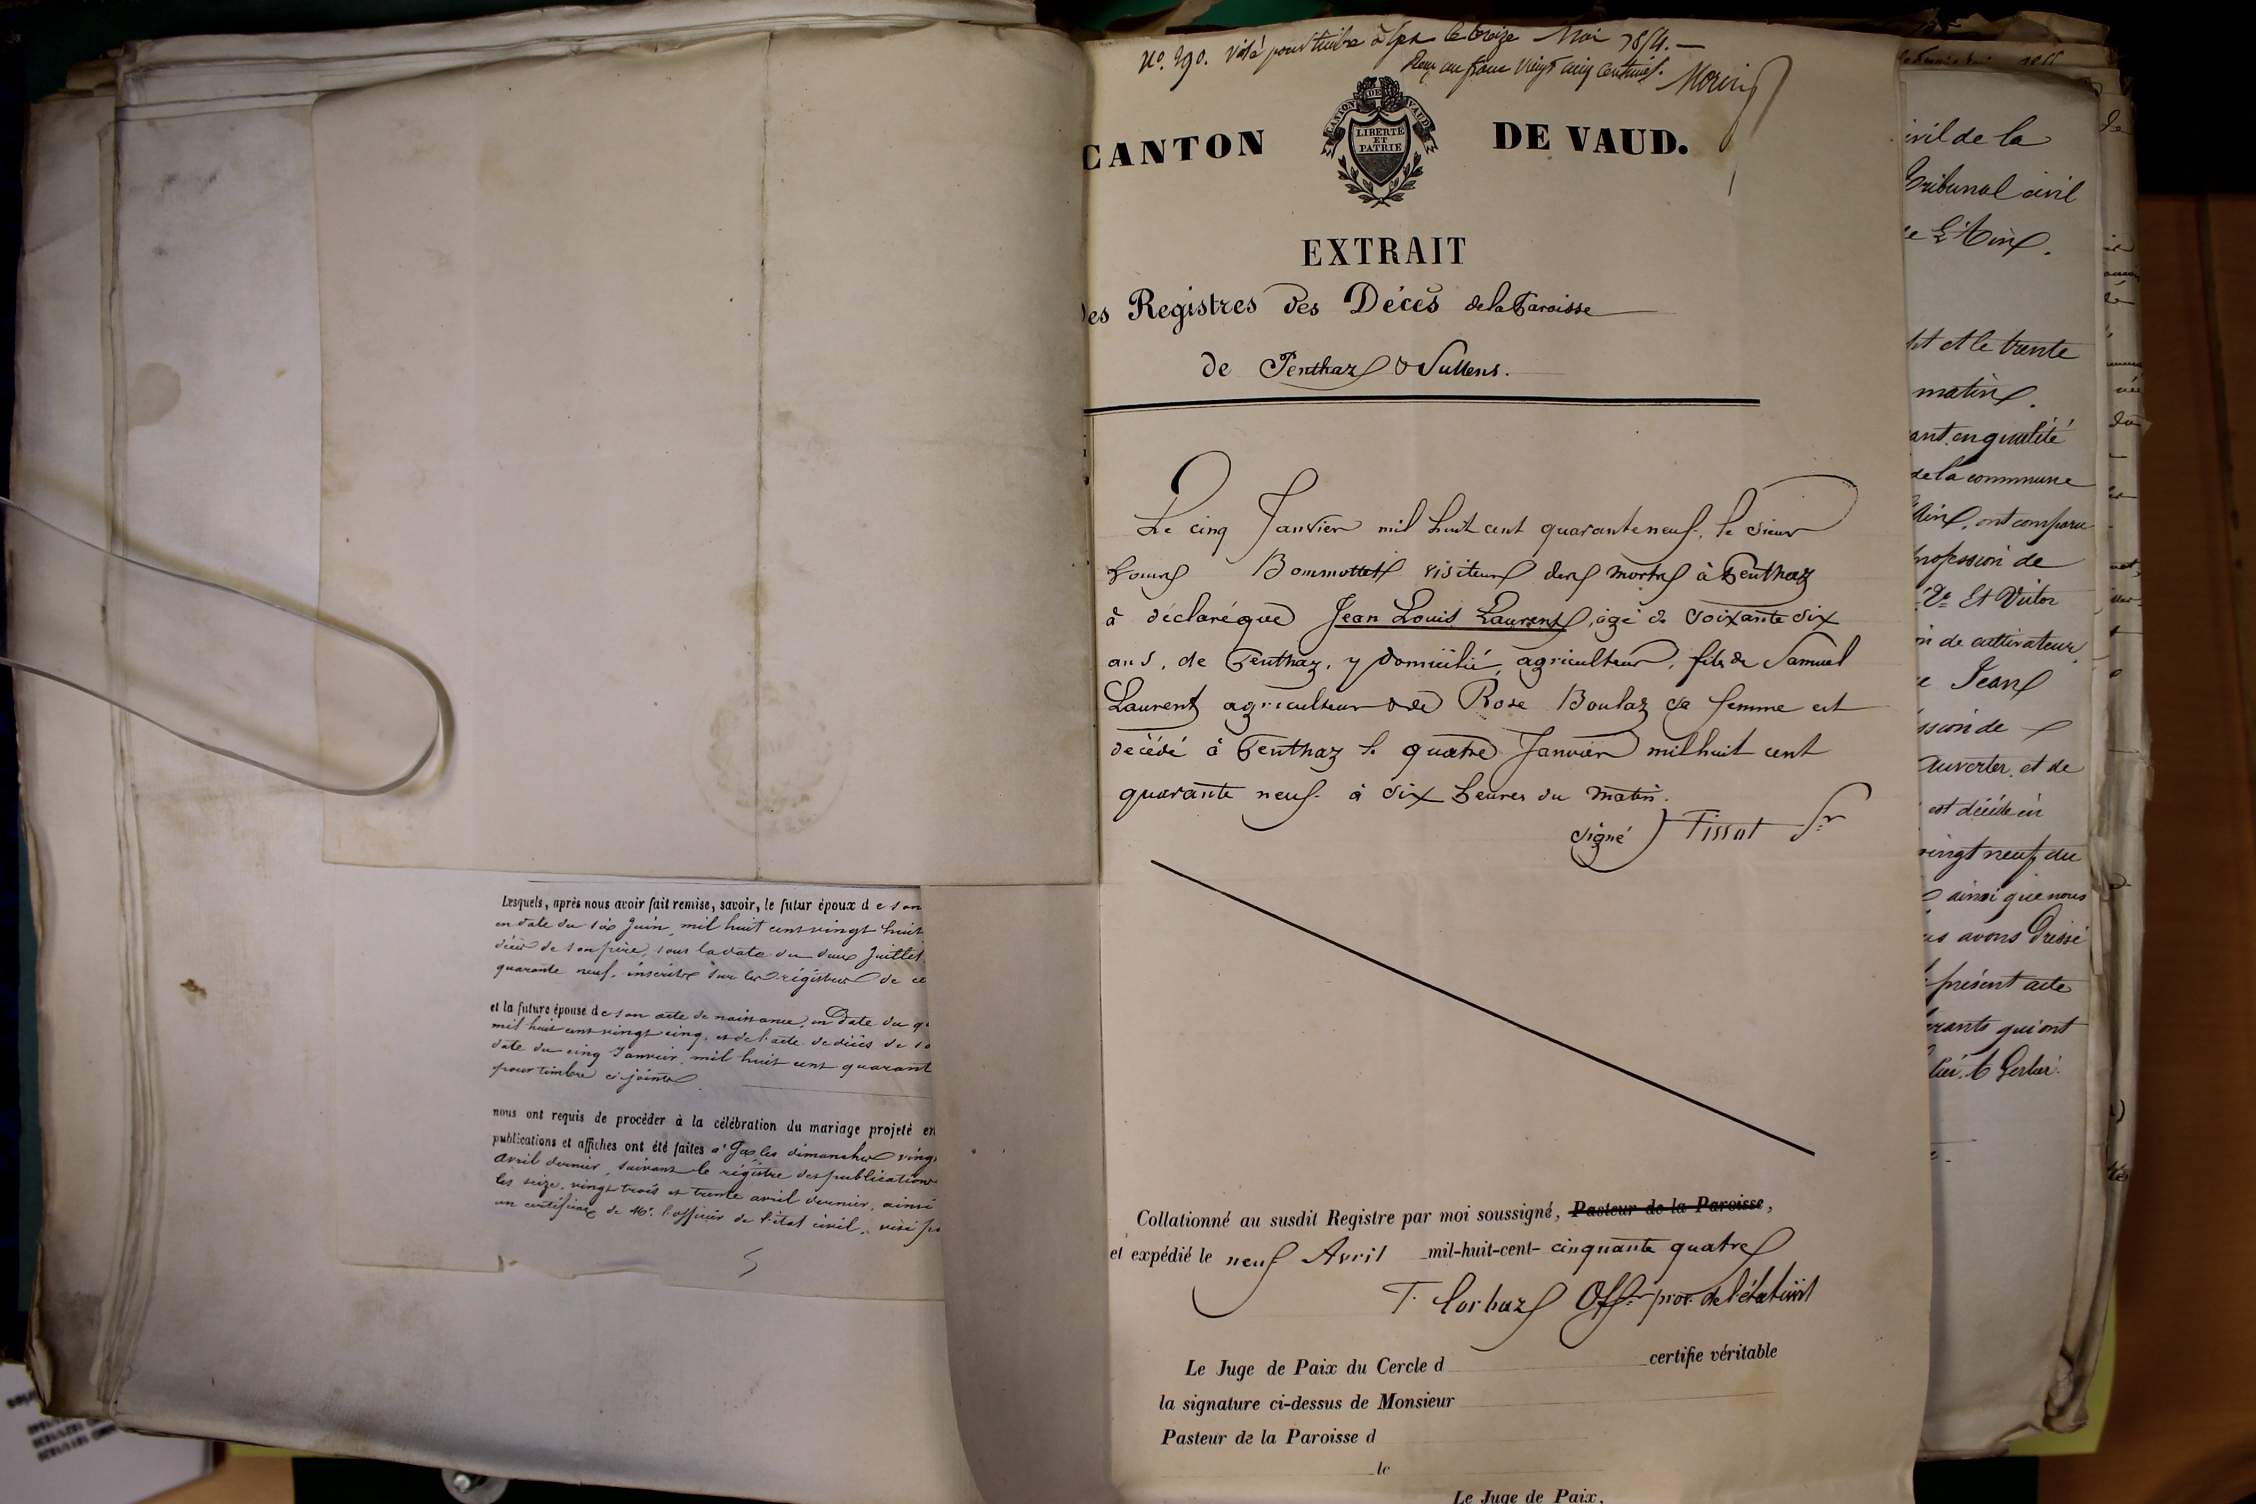 No. 290. Visé pour timbre à Gex le treize Mai 1854. —
Reçu un franc vingt cinq centimes. Morin
CANTON DE VAUD.
CANTON DE VAUD
LIBERTÉ
ET
PATRIE
EXTRAIT
des Registres des Décès de la Paroisse
de Penthaz & Sullens.
Le cinq Janvier mil huit cent quarante neuf, le sieur
Louis Bommottet visiteur des morts à Penthaz
a déclaré que Jean Louis Laurent, agé de soixante six
ans, de Penthaz, y domicilié, agriculteur, fils de Samuel
Laurent agriculteur & de Rose Boulaz sa femme est
décédé à Penthaz le quatre Janvier mil huit cent
quarante neuf à six heures du matin.
signé Tissot
Collationné au susdit Registre par moi soussigné, Pasteur de la Paroisse,
et expédié le neuf Avril mil-huit-cent- cinquante quatre
F. Corbaz Offr. prov. de l'état civil
Le Juge de Paix du Cercle d certifie véritable
la signature ci-dessus de Monsieur
Pasteur de la Paroisse d
le
Le Juge de Paix,
Lesquels, après nous avoir fait remise, savoir, le futur époux de son
en date du six Juin, mil huit cent vingt huit
décès de son père, sous la date du deux Juillet
quarante neuf, inscrits sur les régistres de ce
et la future épouse de son acte de naissance, en date du q
mil huit cent vingt cinq, et de l'acte de décès de so
date du cinq Janvier, mil huit cent quarant
pour timbre ci-joints
nous ont requis de procéder à la célébration du mariage projeté en
publications et affiches ont été faites à Gex les dimanches vingt
avril dernier, suivant le régistre des publications
les seize, vingt trois et trente avril dernier, ainsi
un certificat de Mr. l'officier de l'état civil, visé po
ivil de la
Tribunal civil
de L'Ain.
et le trente
matin.
ant en qualité
de la commune
l'Ain, ont comparu
profession de
Et Victor
de cultivateur,
Jean
ssion de
et de
est décédé en
vingt neuf du
ainsi que nous
us avons dressé
présent acte
arants qui ont